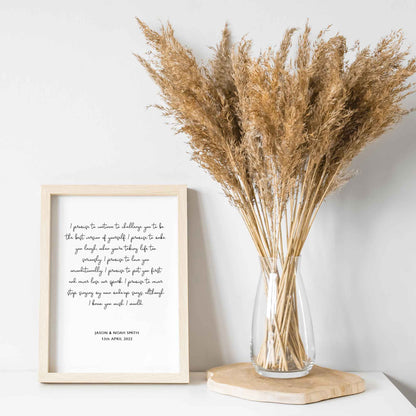 I promise to continue to challenge you to be
the best version of yourself. I promise to make
you laugh when you're taking life too
seriously. I promise to love you
unconditionally. I promise to put you first
and never lose our spark. I promise to never
stop singing my own made-up songs although
I know you wish I would.
JASON & NOAH SMITH
13th APRIL 2022